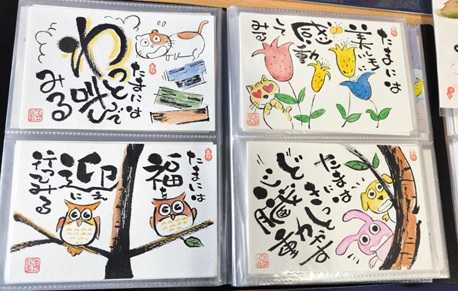 たまには
わっと叫んで
みる
たまには
美しいものに
感動
してみる
たまには
福を
迎えに
行ってみる
たまには
心臓